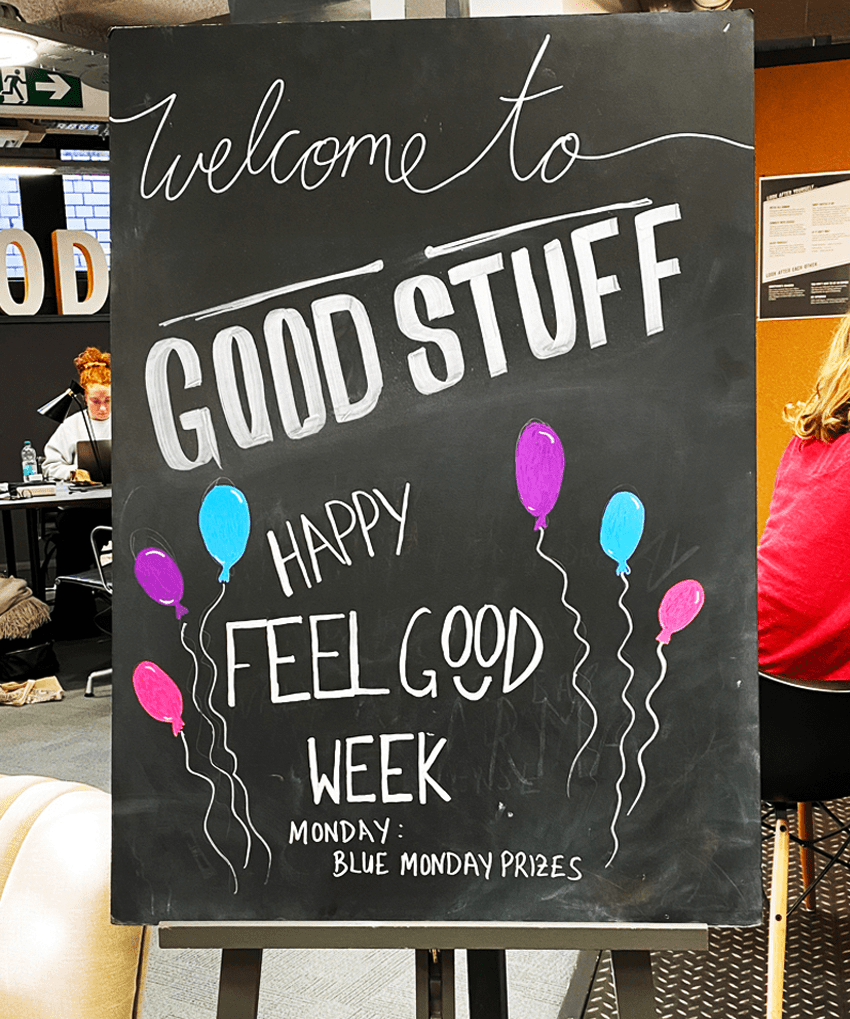 welcome to
GOOD STUFF
HAPPY
FEEL GOOD
WEEK
MONDAY:
BLUE MONDAY PRIZES
OD
LOOK AFTER YOURSELF
LOOK AFTER EACH OTHER